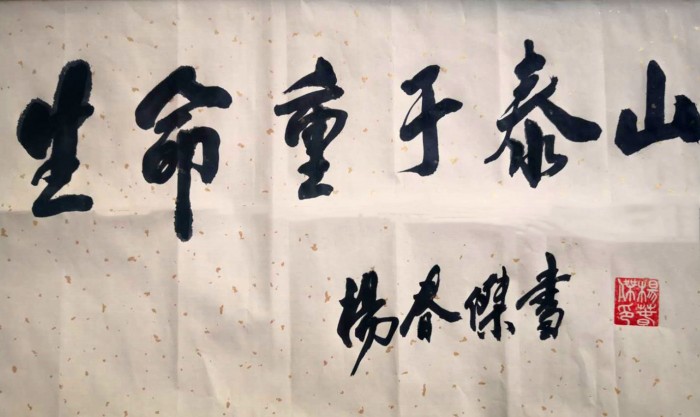 生命重于泰山
楊春傑書
楊春傑印